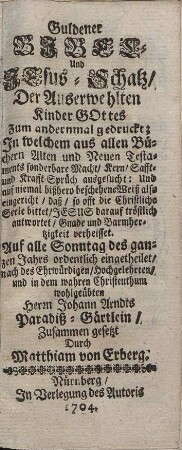 Guldener
BIBEL-
Und
JEsus-Schatz/
Der Auserwehlten
Kinder GOttes
Zum andernmal gedruckt:
In welchem aus allen Bü-
chern Alten und Neuen Testa-
ments sonderbare Macht/ Kern/ Safft-
und Krafft Sprüch ausgesucht: Und
mit niemal bißhero beschehener Weiß also
eingericht/ daß/ so offt die Christliche
Seele bittet/ JESUS darauf tröstlich
antwortet/ Gnade und Barmher-
tzigkeit verheisset.
Auf alle Sonntag des gan-
tzen Jahrs ordentlich eingetheilet/
nach des Ehrwürdigen/ Hochgelehrten/
und in dem wahren Christenthum
wohlgeübten
Herrn Johann Arndts
Paradiß-Gärtlein/
Zusammen gesetzt
Durch
Matthiam von Erberg.
Nürnberg/
In Verlegung des Autoris
1704.